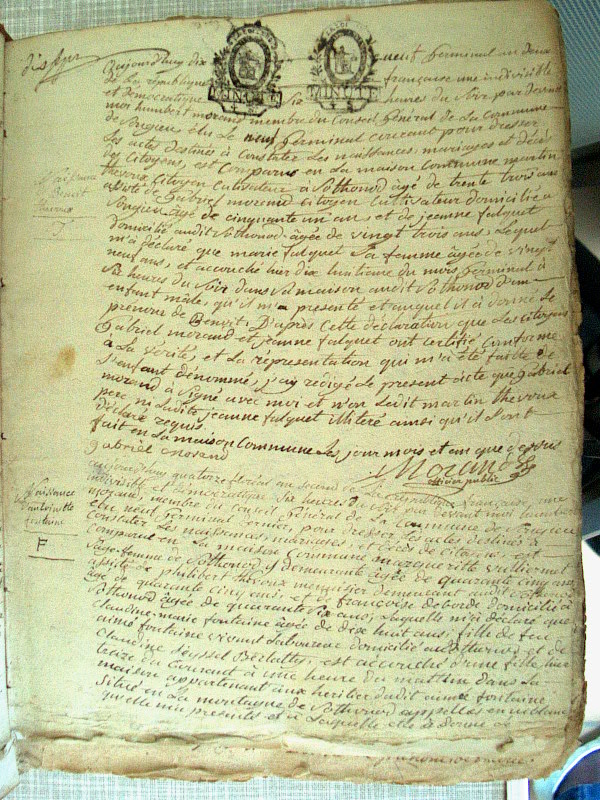 dix
aujourd'huy dix neuf Germinal an deux
De la république française une indivisible
et Démocratique Six heures du Soir par devant
moi humbert morand membre du Conseil Général de la Commune
de Songieu élu le neuf Germinal courant pour dresser
les actes destinés à Constater les naissances, mariages et décès
des Citoyens, est Comparus en la maison Commune martin
thevoux Citoyen Cultivateur à Sothonod agé de trente trois ans
assisté de Gabriel morand citoyen Cultivateur domicilié à
Songieu agé de cinquante un ans et de jeanne fulquet
domicilié audit Sothonod agée de vingt trois ans, Lequel
m'a déclaré que marie fulquet Sa femme âgée de vingt
neuf ans, est accouché hier dix huitieme du mois Germinal à
Six heures du Soir dans Sa maison audit Sothonod d'un
enfant mâle, qu'il m'a presenté et auquel il à donné le
prénom de Benoit, D'après Cette déclaration que les citoyens
Gabriel morand et jeanne fulquet ont certifié Conforme
à la vérité, et la réprésentation qui m'a été faitte de
l'enfant dénommé, j'ay rédigé Le present acte que gabriel
morand à Signé avec moi et n'on ledit martin thevoux
pere, ni ladite jeanne fulquet illitéré ainsi qu'il s'ont
déclaré requis
fait en la maison Commune Les jour mois et an que dessus
gabriel morand
Morand
officier public
Naissance
Benoit
thevoux
Naissance
antoinette
fontaine
F
aujourd'huy quatorze floréal an second de La république française, une
indivisible et démocratique Six heures du Soir par devant moi humbert
morand, membre du Conseil Général de La Commune de Songieu
élu neuf Germinal dernier, pour dresser Les actes destinés à
Constater Les naissances, mariages, et décès des citoyens, est
Comparue en la maison Commune, margueritte vuilliermet
Sage-femme de Sothonod y demeurante agée de quarante cinq ans
assisté de philibert thevoux menuisier demeurant audit Sothonod
agé de quarante cinq ans, et de françoise deborde domicilié à
Sothonod âgée de quarante Six ans, Laquelle m'a déclaré que
claudine marie fontaine âgée de dix huit ans, fille de feu
aimé fontaine vivant Laboureur domicilié au et de
Claudine est accouché d'une fille hier
treize du Courant à une heure du mattin dans La
maison appartenant aux heritier dudit aimé fontaine
Situé en La montagne de Sothonod appellés
qu'elle m'a presenté et à Laquelle elle à donné le